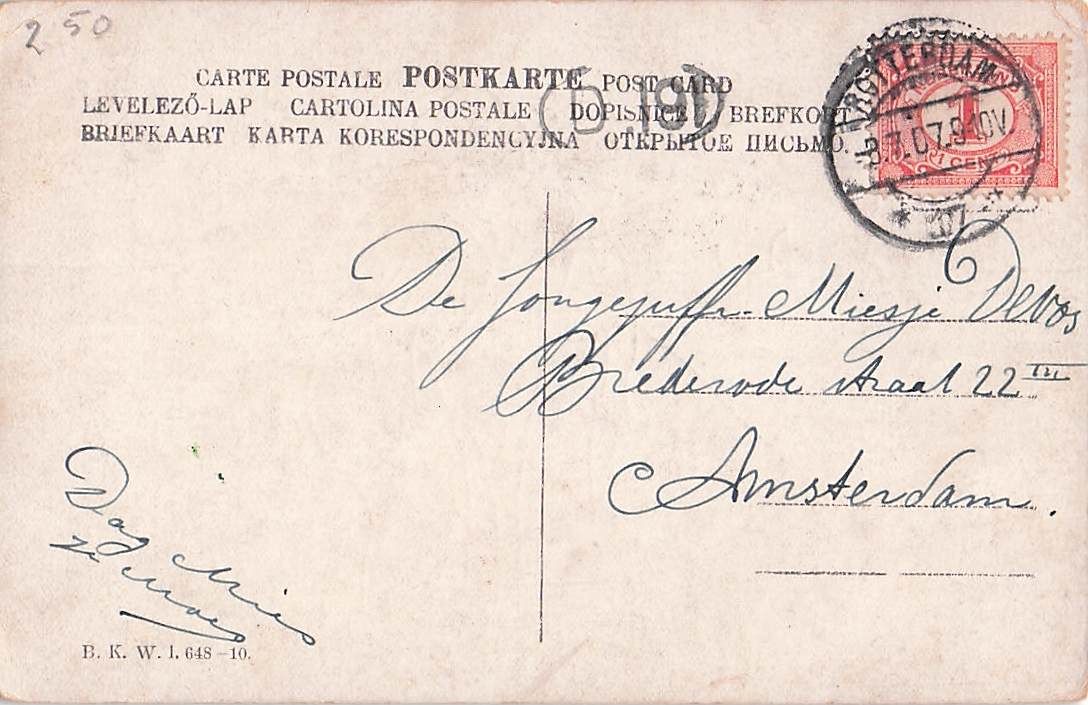 2 50
CARTE POSTALE POSTKARTE POST CARD
LEVELEZŐ-LAP CARTOLINA POSTALE DOPISNICE BREFKORT
BRIEFKAART KARTA KORESPONDENCYJNA ОТКРЫТОЕ ПИСЬМО.
ROTTERDAM
8.7.07.9-10V.
1
1 CENT
De Jongejuffr. Miesje DeVos
Brederode straat 22 III
Amsterdam.
Dag Mies
B. K. W. I. 648-10.